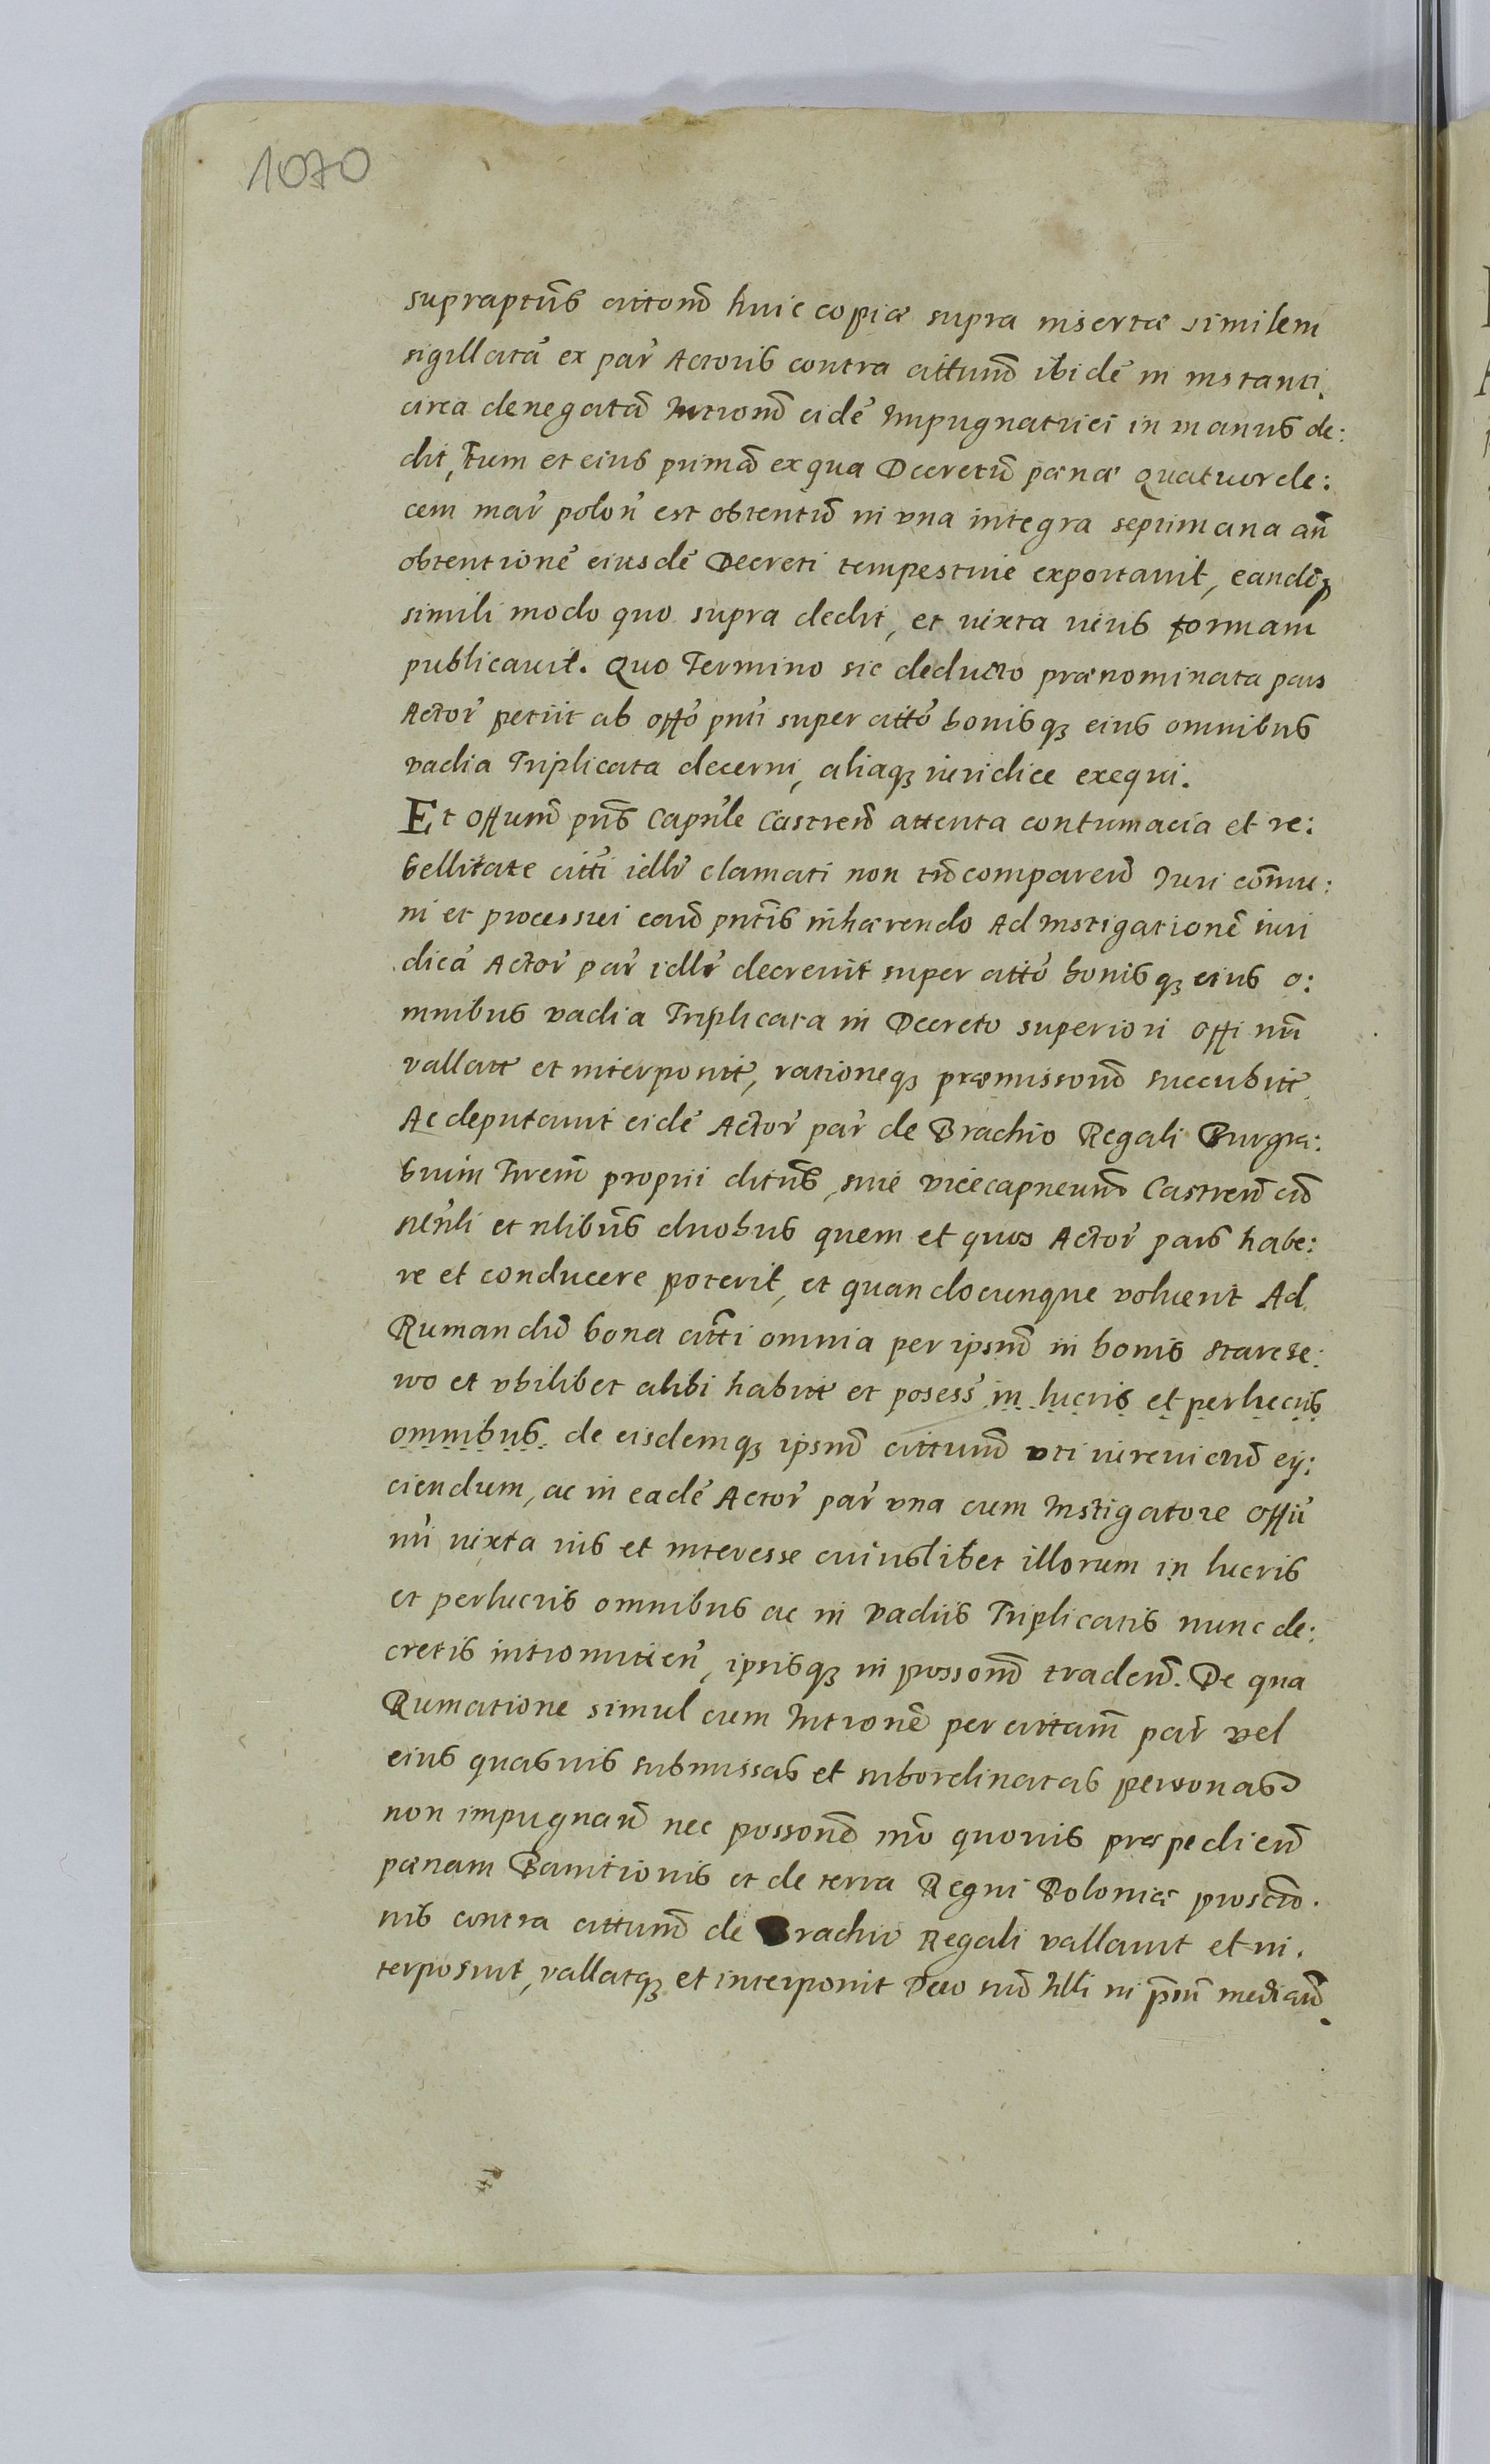 1070
supraptũs cittonẽ huic copiæ supra insertæ similem
sigillatã ex par̃ Actoris contra cittum̃ ibidẽ in instanti,
circa denegatã Intronẽ eidẽ Impugnatrici in manus de:
dit, Tum et eius primã ex qua Decretũ pænæ quatuorde:
cem mar̃ polon̄ est obtentũ in una integra septimana an̄
obtentionẽ eiusdẽ Decreti tempestiue exportauit, eandẽq;
simili modo quo supra dedit, et iuxta iuris formam
publicauit. Quo Termino sic deducto prænominata pars
Actor̃ petiit ab offõ pñti super citto bonisq; eius omnibus
vadia Triplicata decerni, aliaq; iuridice exequi.
Et Offium̃ pñs Capñle Castren̄ attenta contumacia et re:
bellitate citti idlr̃ clamati non tñ comparen̄ Iuri cõmu:
ni et processui caus̄ pntis inhærendo Ad instigationẽ iuri
dicã Actor̃ par̃ idlr̃ decreuit super cittõ bonisq; eius o:
mnibus vadia Triplicata in Decreto superiori Offi nr̄i
vallatt et interposuit, rationeq; præmissorum̃ succubitt.
Ac deputauit eidẽ Actor̃ par̃ de Brachio Regali Burgra:
bium Tren̄ proprii ditũs, siue vicecapneum̃ Castren̄ cũ
nẽnli et nlibũs duobus quem et quos Actor̃ pars habe:
re et conducere poterit, et quandocunque voluerit Ad
Rumandũ bona citti omnia per ipsum̃ in bonis Starese:
wo et vbilibet alibi habitt et posess̃ in lucris et perlucris
omnibus de eisdemq; ipsum̃ cittum̃ vti iureuictũ eij:
ciendum, ac in eadẽ Actor̃ par̃ una cum Instigatore Offii
nr̄i iuxta ius et interesse cuiuslibet illorum in lucris
et perlucris omnibus ac in vadiis Triplicatis nunc de:
cretis intromitten̄, ipsisq; in possonẽ traden̄. De qua
Rumatione simul cum Intronẽ per cittam̄ par̃ vel
eius quasuis submissas et subordinatas personas
non impugnan̄ nec possonẽ mõ quouis præpedien̄
pænam Banitionis et de terra Regni Poloniæ proscrio.
nis contra cittum̃ de Brachio Regali vallauit et in.
terposuit, vallatq; et interponit Dccto suõ hõc in p̄mis̄ median̄.